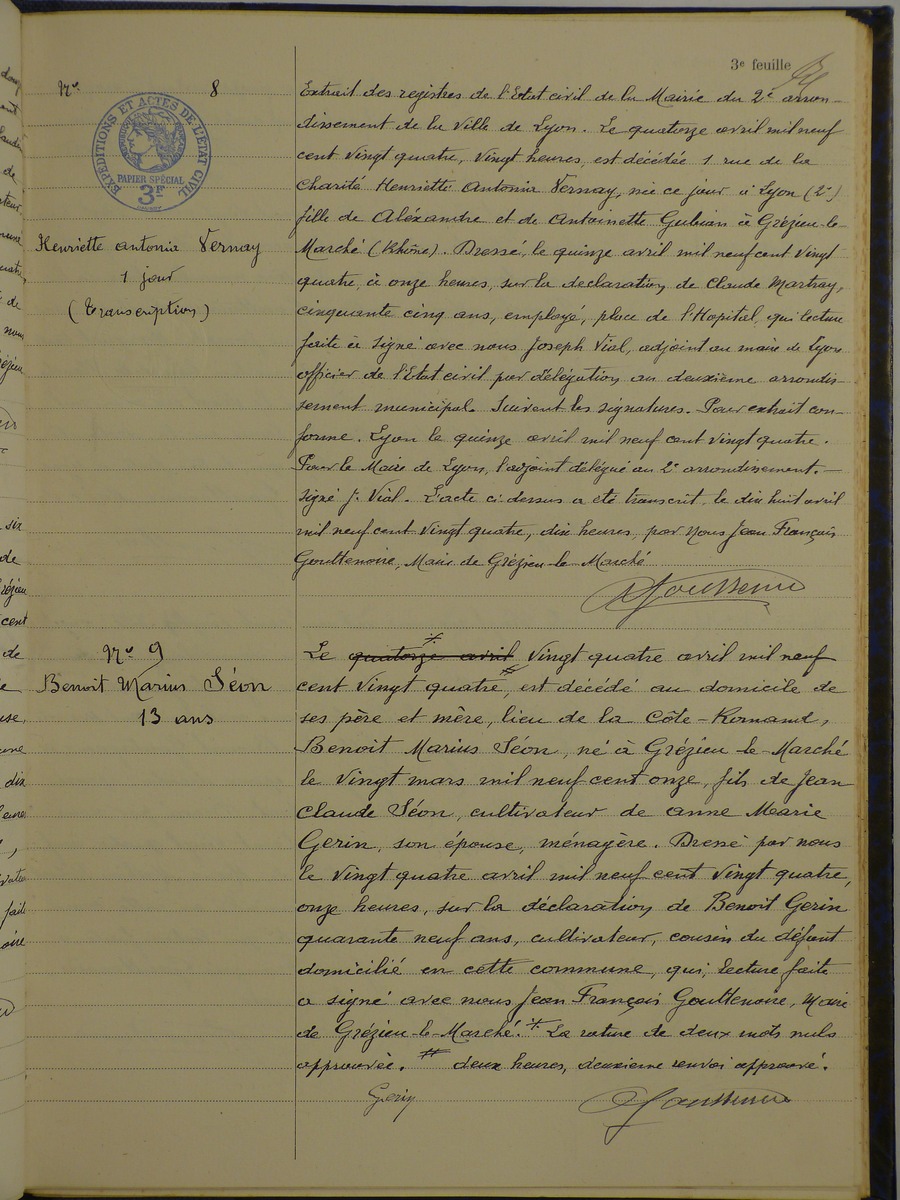 3e feuille
No 8
EXPEDITIONS ET ACTES DE L'ETAT CIVIL
PAPIER SPÉCIAL
3F
Henriette Antonia Vernay
1 jour
(Transcription)
Extrait des registres de l'Etat civil de la Mairie du 2e arron-
dissement de la Ville de Lyon. Le quatorze avril mil neuf
cent vingt quatre, vingt heures, est décédée 1 rue de la
Charité Henriette Antonia Vernay, née ce jour à Lyon (2e)
fille de Aléxandre et de Antoinette à Grézieu-le-
Marché (Rhône). Dressé, le quinze avril mil neuf cent vingt
quatre, à onze heures, sur la déclaration de Claude Martray,
cinquante cinq ans, employé, place de l'Hopital, qui lecture
faite a signé avec nous Joseph Vial, adjoint au maire de Lyon
officier de l'Etat civil par délégation au deuxième arrondis-
sement municipal. Suivent les signatures. Pour extrait con-
forme. Lyon le quinze avril mil neuf cent vingt quatre.
Pour le Maire de Lyon, l'adjoint délégué au 2e arrondissement.-
Signé J. Vial. L'acte ci-dessus a été transcrit, le dix huit avril
mil neuf cent vingt quatre, dix heures, par nous Jean François
Gouttenoire, Maire de Grézieu-le Marché
No 9
Benoit Marius Séon
13 ans
Le quatorze avril vingt quatre avril mil neuf
cent vingt quatre, est décédé au domicile de
ses père et mère, lieu de la Côte-Romand,
Benoit Marius Séon, né à Grézieu-le-Marché
le vingt mars mil neuf cent onze, fils de Jean
Claude Séon, cultivateur de Anne Marie
Gerin, son épouse, ménagère. Dressé par nous
le vingt quatre avril mil neuf cent vingt quatre,
onze heures, sur la déclaration de Benoit Gerin
quarante neuf ans, cultivateur, cousin du défunt
domicilié en cette commune, qui, lecture faite
a signé avec nous Jean François Gouttenoire, Maire
de Grézieu-le-Marché. La rature de deux mots nuls
approuvée. deux heures, deuxième renvoi approuvé.
Gerin